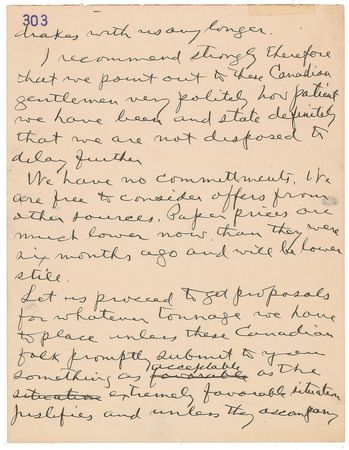 303
drakes with us any longer.
I recommend strongly therefore
that we point out to these Canadian
gentlemen very politely how patient
we have been and state definitely
that we are not disposed to
delay further
We have no committments. We
are free to consider offers from
other sources. Paper prices are
much lower now than they were
six months ago and will be lower
still.
Let us proceed to get proposals
for whatever tonnage we have
to place unless these Canadian
folk promptly submit to you
something as favorable acceptable as the
situation extremely favorable situation
justifies and unless they accompany